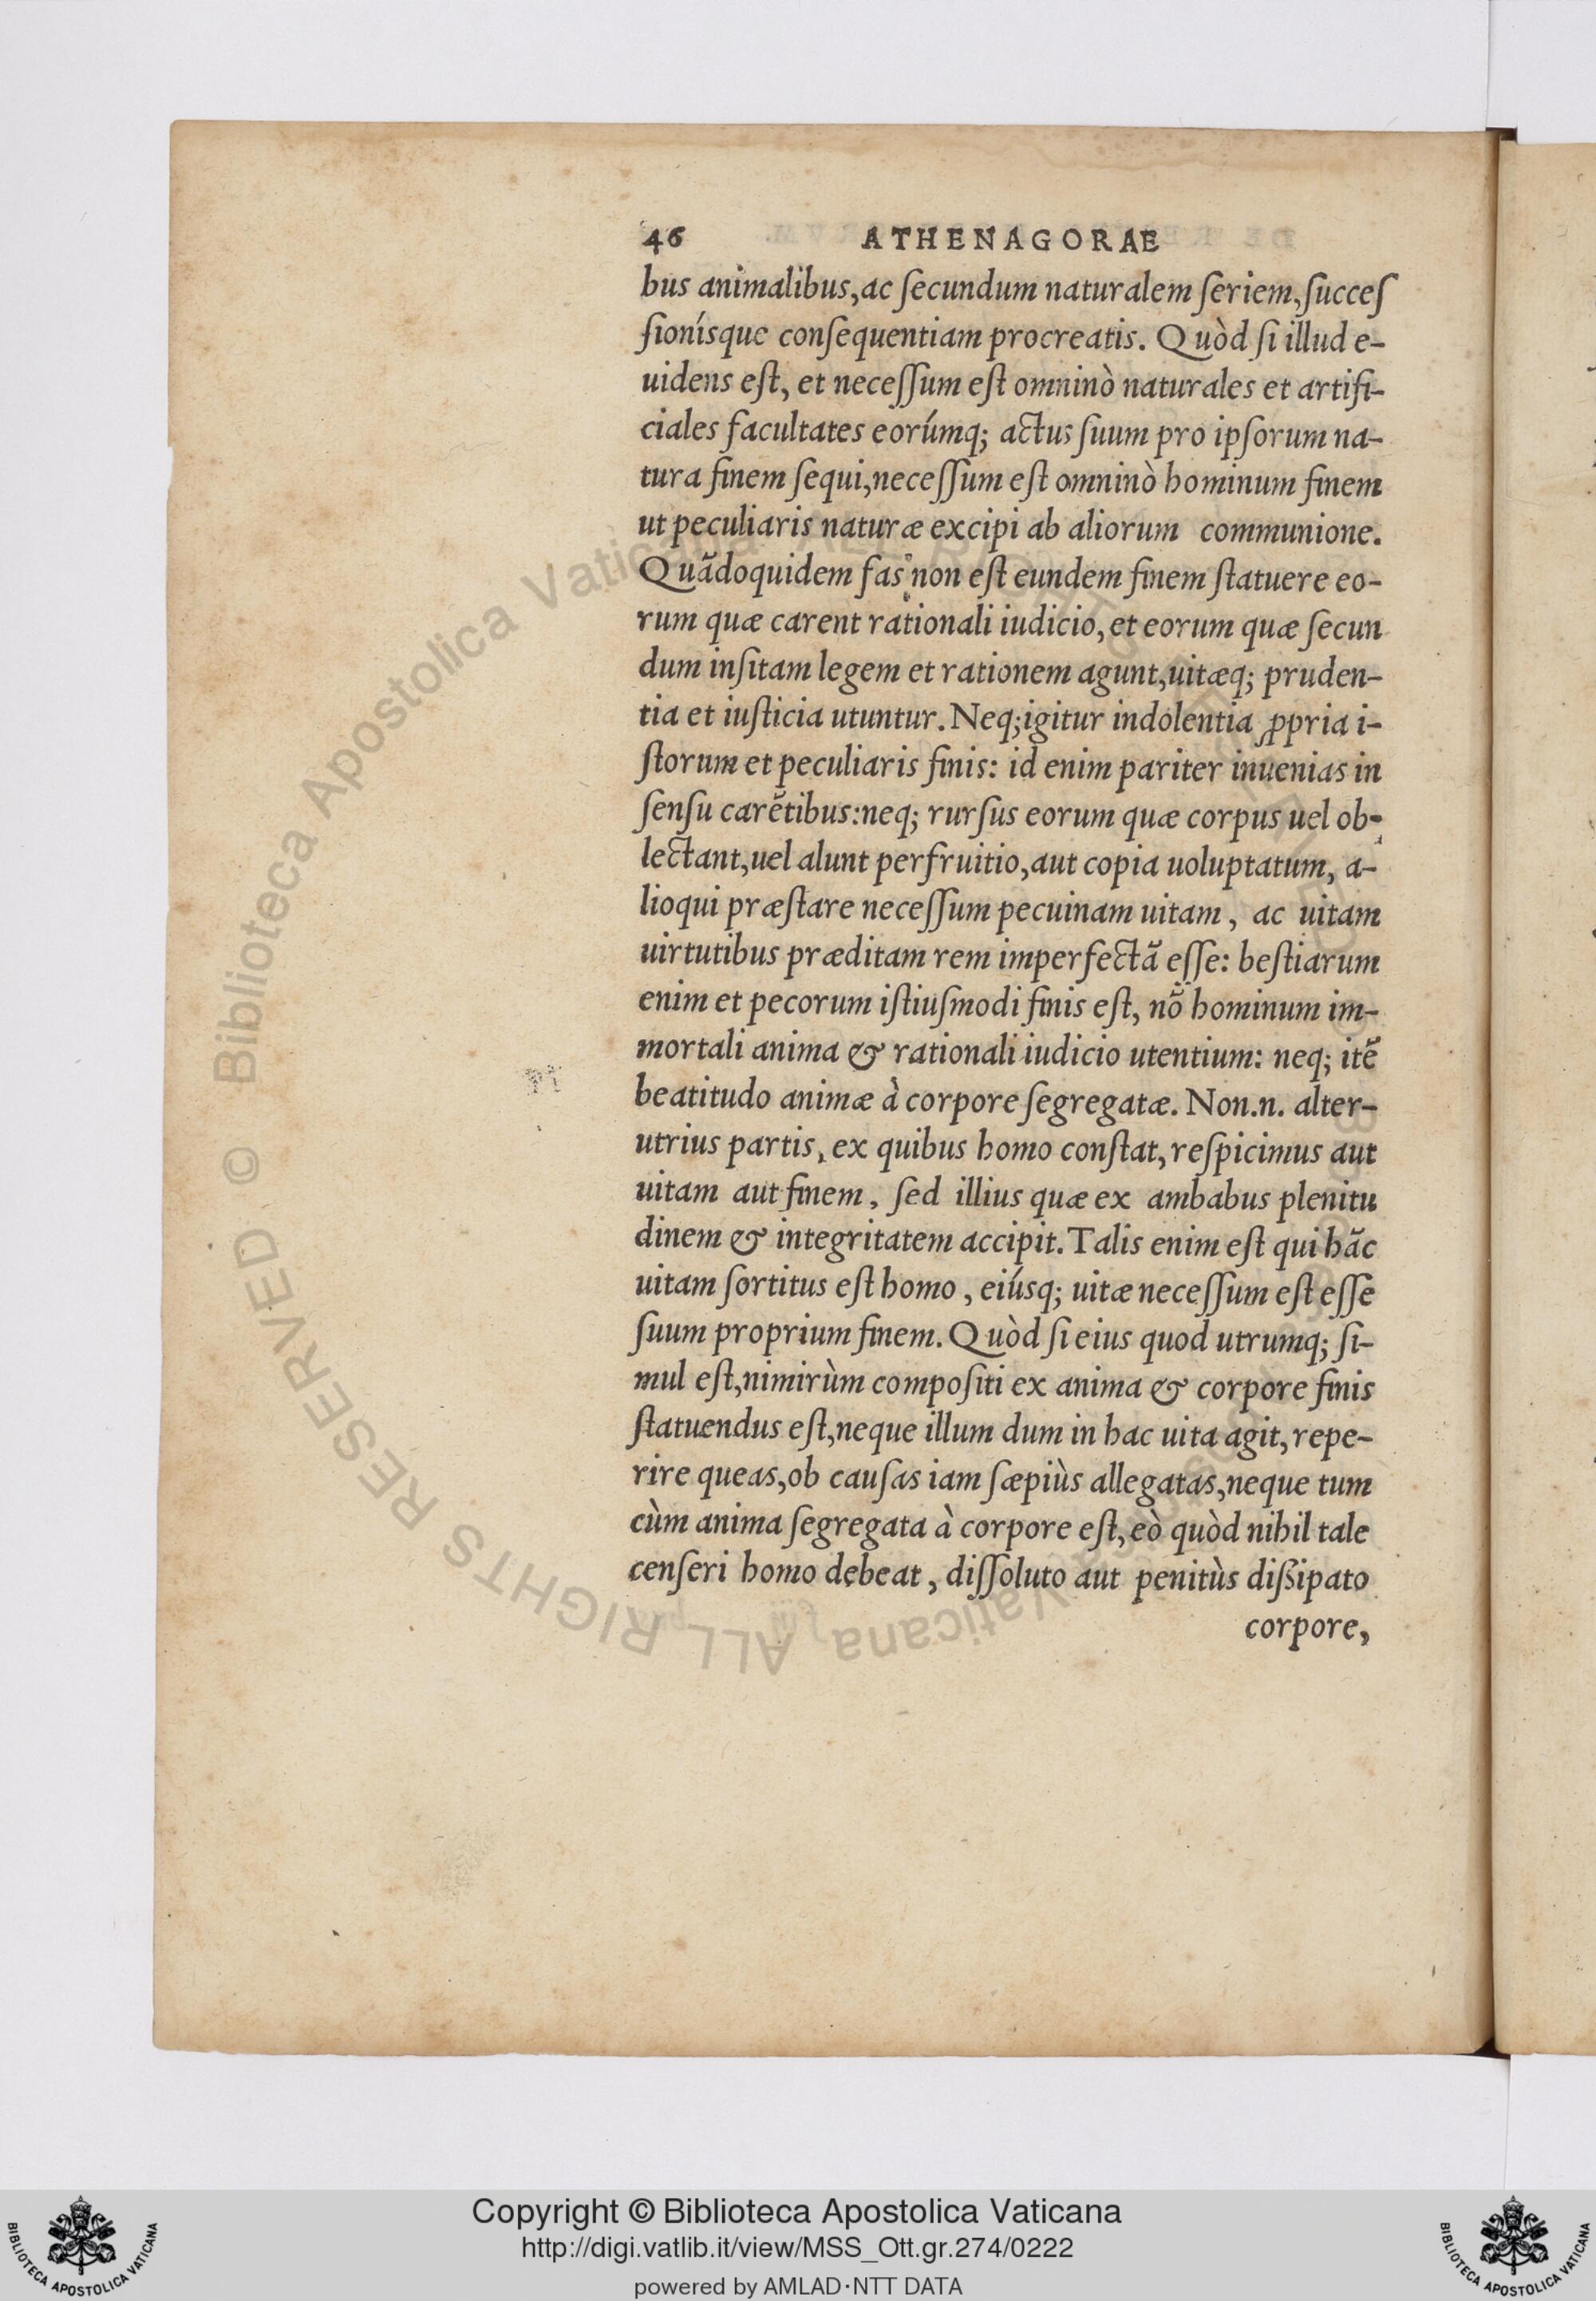 46 ATHENAGORAE
bus animalibus,ac ſecundum naturalem ſeriem,ſucceſ
ſionísque conſequentiam procreatis. Quòd ſi illud e-
uidens eſt, et neceſſum eſt omninò naturales et artifi-
ciales facultates eorúmq; actus ſuum pro ipſorum na-
tura finem ſequi,neceſſum eſt omninò hominum finem
ut peculiaris naturæ excipi ab aliorum communione.
Quãdoquidem fas non eſt eundem finem ſtatuere eo-
rum quæ carent rationali iudicio,et eorum quæ ſecun
dum inſitam legem et rationem agunt,uitæq; pruden-
tia et iuſticia utuntur. Neq;igitur indolentia ꝓpria i-
ſtorum et peculiaris finis: id enim pariter inuenias in
ſenſu carẽtibus:neq; rurſus eorum quæ corpus uel ob-
lectant,uel alunt perfruitio,aut copia uoluptatum, a-
lioqui præſtare neceſſum pecuinam uitam, ac uitam
uirtutibus præditam rem imperfectã eſſe: beſtiarum
enim et pecorum iſtiuſmodi finis eſt, nõ hominum im-
mortali anima & rationali iudicio utentium: neq; itẽ
beatitudo animæ à corpore ſegregatæ. Non.n. alter-
utrius partis, ex quibus homo conſtat,reſpicimus aut
uitam aut finem, ſed illius quæ ex ambabus plenitu
dinem & integritatem accipit. Talis enim eſt qui hãc
uitam ſortitus eſt homo, eiúsq; uitæ neceſſum eſt eſſe
ſuum proprium finem. Quòd ſi eius quod utrumq; ſi-
mul eſt,nimirùm compoſiti ex anima & corpore finis
ſtatuendus eſt,neque illum dum in hac uita agit,repe-
rire queas,ob cauſas iam ſæpiùs allegatas,neque tum
cùm anima ſegregata à corpore eſt,eò quòd nihil tale
cenſeri homo debeat, diſſoluto aut penitùs diſsipato
corpore,
© Biblioteca Apostolica Vaticana ALL RIGHTS RESERVED
BIBLIOTECA APOSTOLICA VATICANA
Copyright © Biblioteca Apostolica Vaticana
http://digi.vatlib.it/view/MSS_Ott.gr.274/0222
powered by AMLAD·NTT DATA
BIBLIOTECA APOSTOLICA VATICANA